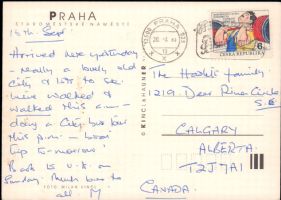 PRAHA
STAROMĚSTSKÉ NÁMĚSTÍ
18th Sept
Arrived here yesterday
- really a lovely old
city & lots to see.
Have walked &
walked this a.m -
doing a City bus tour
this p.m. -
trip to-morrow.
Back to U.K. on
Sunday. Much love to
all M
FOTO MILAN
© KINCL & HAUNER
PRAHA
6
ČESKÁ REPUBLIKA
The Family
1219 Deer River Circle
S.E.
CALGARY
ALBERTA
T2J7A1
CANADA.